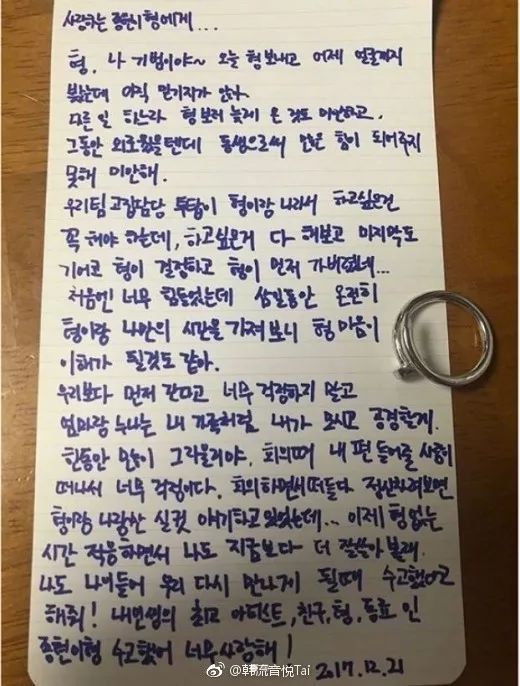 사랑하는 종현이형에게...
형, 나 기범이야~ 오늘 형 보내고 어제 얼굴까지
봤는데 아직 믿기지가 않다.
다른 일 하느라 형보러 늦게 온 것도 미안하고,
그동안 외로웠을텐데 동생으로써 많은 힘이 되어주지
못해 미안해.
우리팀 고집담당 투탑이 형이랑 나라서 하고싶은건
꼭 해야 하는데, 하고싶은거 다 해보고 마지막도
기어코 형이 결정하고 형이 먼저 가버렸네...
처음엔 너무 힘들었는데 삼일동안 온전히
형이랑 나만의 시간을 가져보니 형 마음이
이해가 될것도 같아.
우리보다 먼저 간다고 너무 걱정하지 말고
엄마랑 누나는 내 가족처럼 내가 모시고 공경할게.
한동안 많이 그리울거야. 회의때 내 편 들어줄 사람이
떠나서 너무 걱정이다. 회의하면서 떠들다 정신차려보면
형이랑 나랑만 실컷 얘기하고 있었는데... 이제 형 없는
시간 적응하면서 나도 지금보다 더 잘 살아볼래.
나도 나이들어 우리 다시 만나게 될때 수고했다고
해줘! 내 인생의 최고 아티스트, 친구, 형, 동료 인
종현이형 수고했어 너무 사랑해!
2017.12.21
@韩流音悦Tai